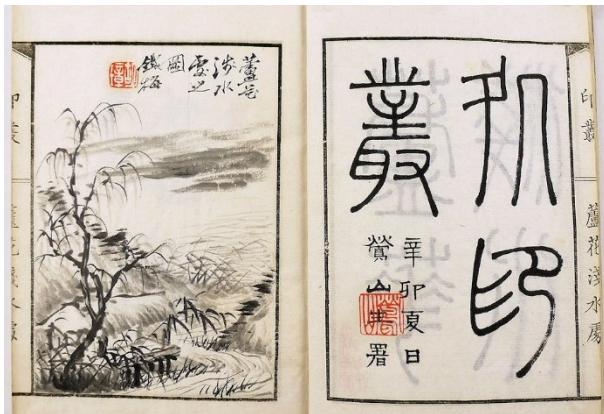 印叢
蘆花淺水處
印
叢
辛卯夏日
鶯山署
蘆花
淺水
處之
圖
鐵梅